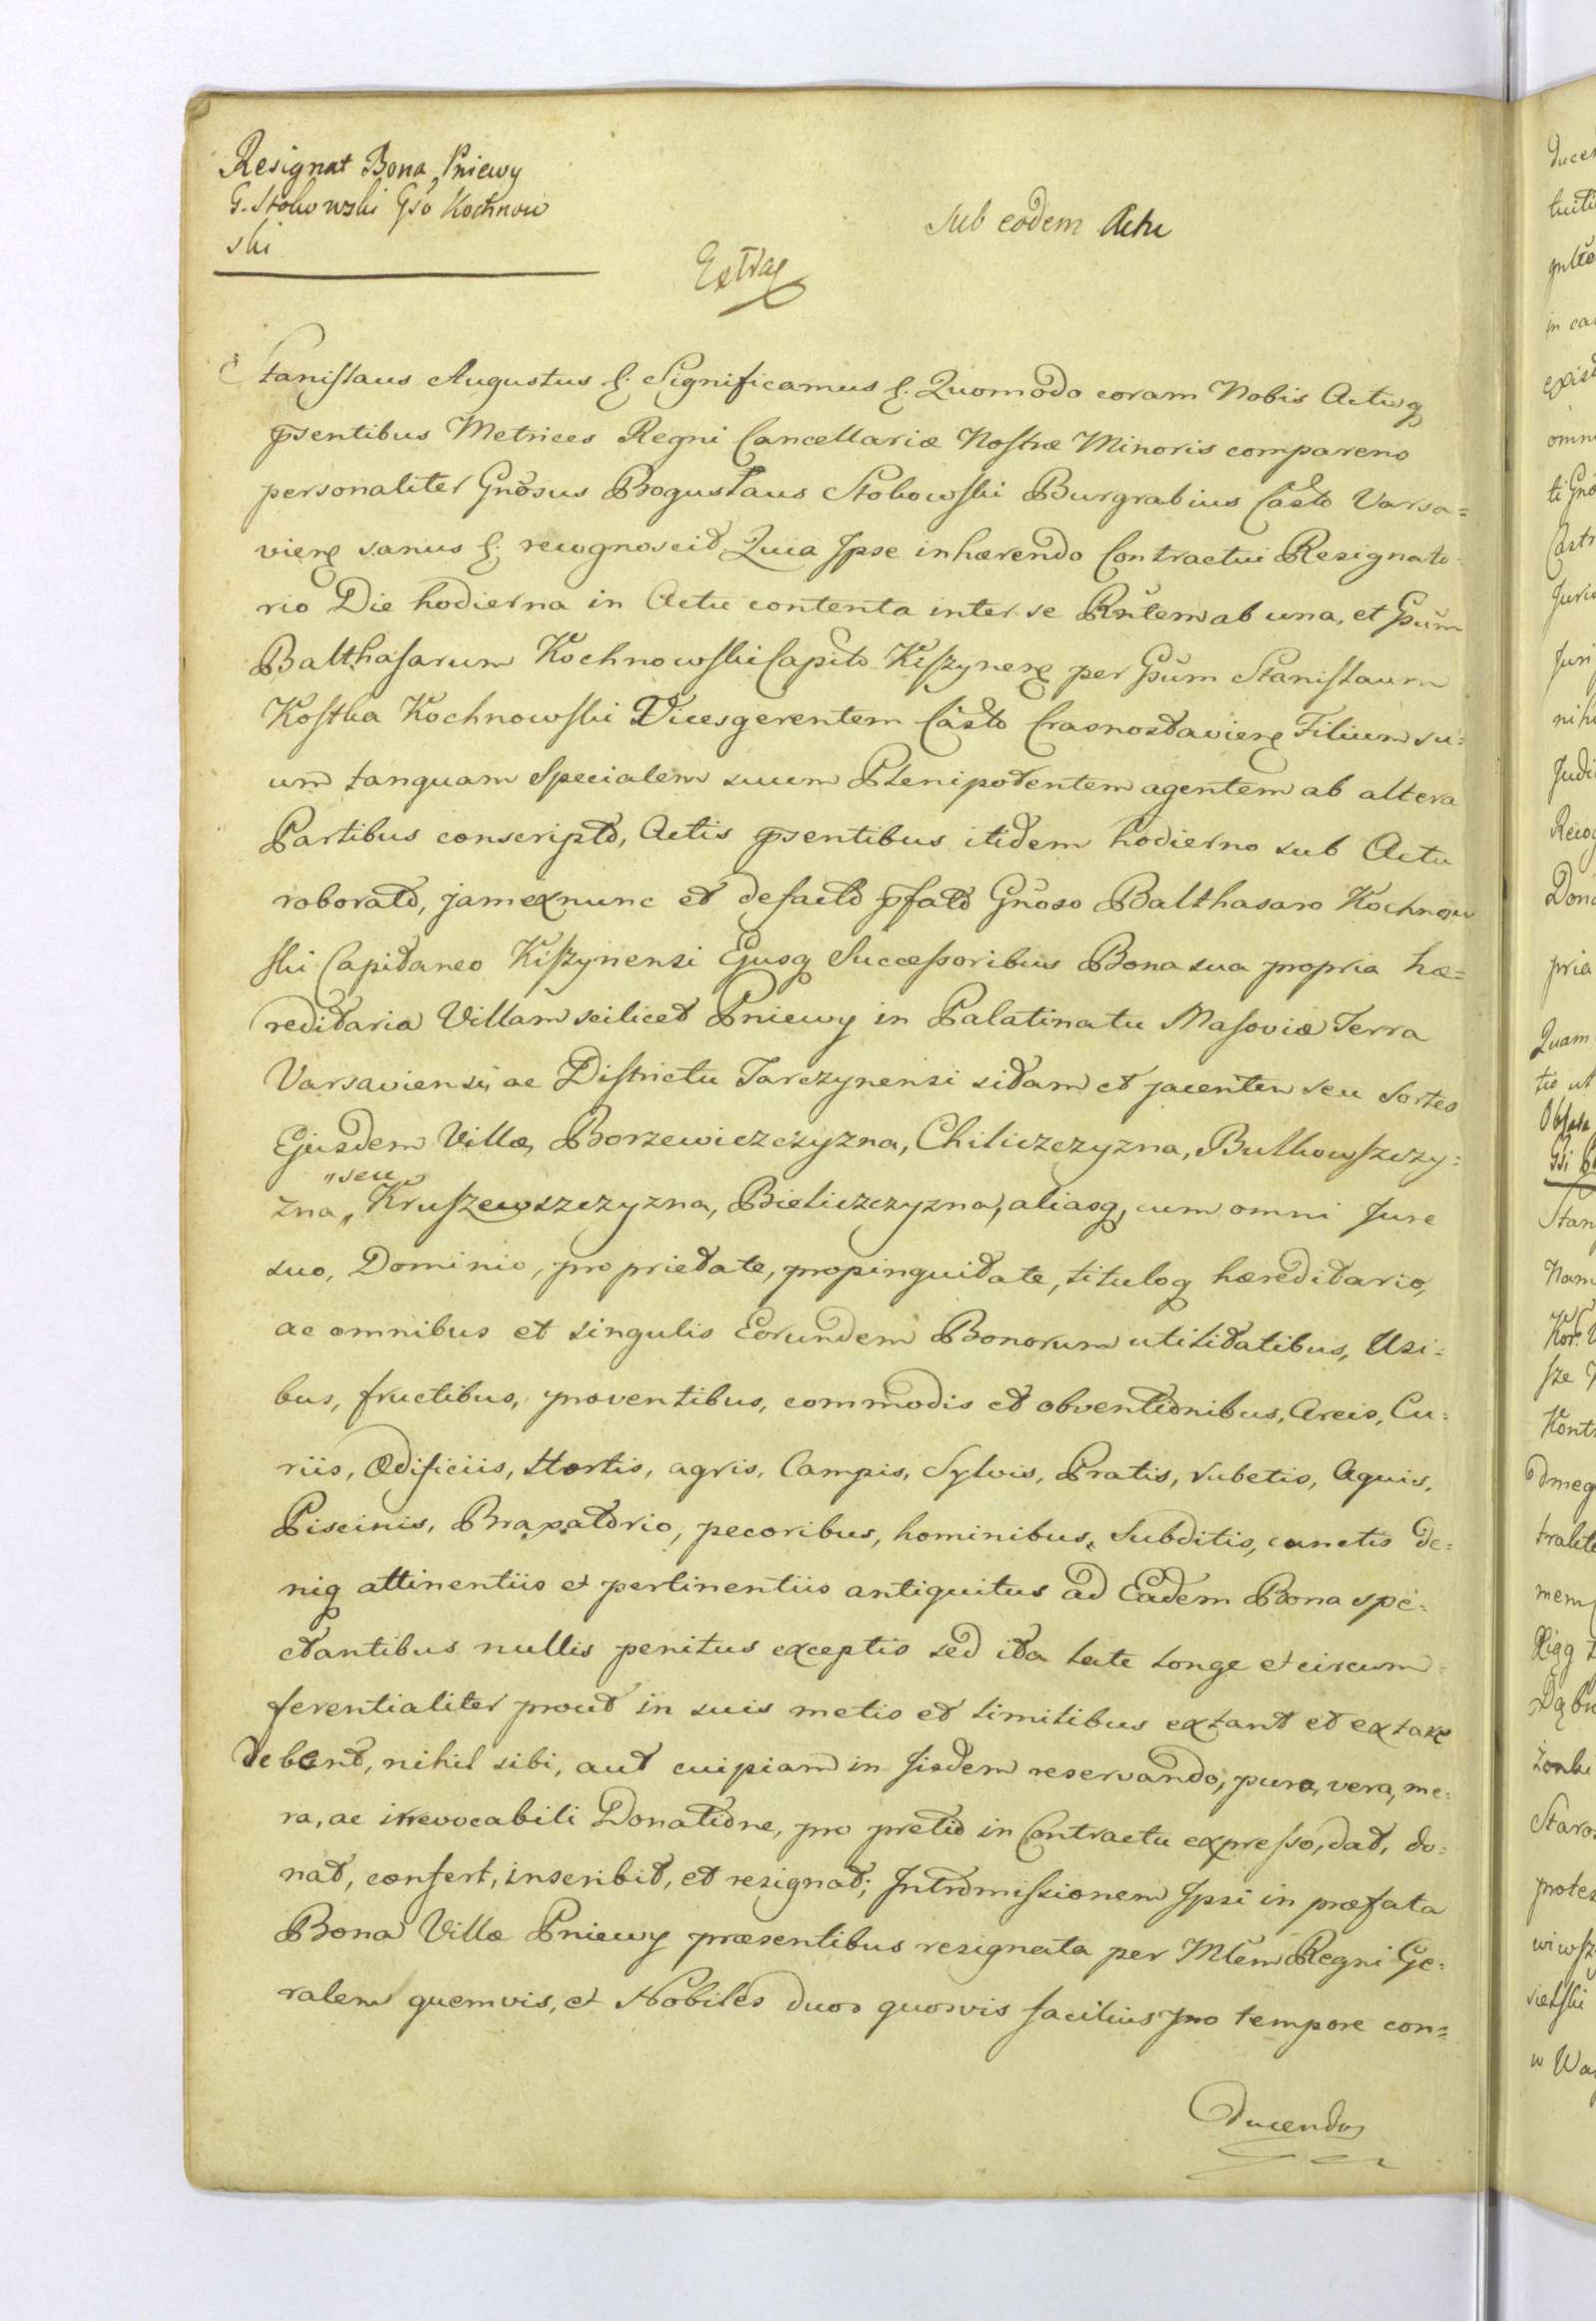 Resignat Bona Pniewy
G. Stokowski Gso Kochnow
ski
Sub eodem Actu
Extrag
Stanislaus Augustus &. Significamus &. Quomodo coram Nobis Actisq
psentibus Metrices Regni Cancellariæ Nostræ Minoris comparens
personaliter Gnosus Boguslaus Stokowski Burgrabius Casto Varsa=
viens sanus &. recognoscit, Quia Ipse inhærendo Contractui Resignato=
rio Die hodierna in Actu contenta inter se Rntem ab una, et Gsum
Balthasarum Kochnowski Capito Kiszynens per Gsum Stanislaum
Kostka Kochnowski Vicesgerentem Casto Crasnostaviens Filium su=
um tanquam Specialem suum Plenipotentem agentem ab altera
Partibus conscripto, Actis psentibus itidem hodierno sub Actu
roborato, jam ex nunc et defacto pfato Gnoso Balthasaro Kochnow
ski Capitaneo Kiszynensi Ejusq Successoribus Bona sua propria hæ=
reditaria Villam scilicet Pniewy in Palatinatu Masoviæ Terra
Varsaviensi, ac Districtu Tarczynensi sitam et jacentem seu Sortes
Ejusdem Villæ, Borzewiczczyzna, Chiliczczyzna, Bulkowszczy=
„seu
zna„ Kruszewszczyzna, Bieliczczyzna, aliasq, cum omni Jure
suo, Dominio, proprietate, propinquitate, tituloq hæreditario,
ac omnibus et singulis Eorundem Bonorum utilitatibus, Usi=
bus, fructibus, proventibus, commodis et obventionibus, Areis, Cu=
riis, Ædificiis, Hortis, agris, Campis, Sylvis, Pratis, rubetis, Aquis,
Piscinis, Braxatorio, pecoribus, hominibus, Subditis, cunctis de=
niq attinentiis et pertinentiis antiquitus ad Eadem Bona spe=
ctantibus nullis penitus exceptis sed ita late longe et circum=
ferentialiter prout in suis metis et limitibus extant et extare
debent, nihil sibi, aut cuipiam in Iisdem reservando, pura, vera, me=
ra, ac irrevocabili Donatione, pro pretio in Contractu expresso, dat, do=
nat, confert, inscribit, et resignat; Intromissionem Ipsi in præfata
Bona Villæ Pniewy præsentibus resignata per Mlem Regni Ge=
ralem quemvis, et Nobiles duos quosvis facilius pro tempore con=
Ducendos